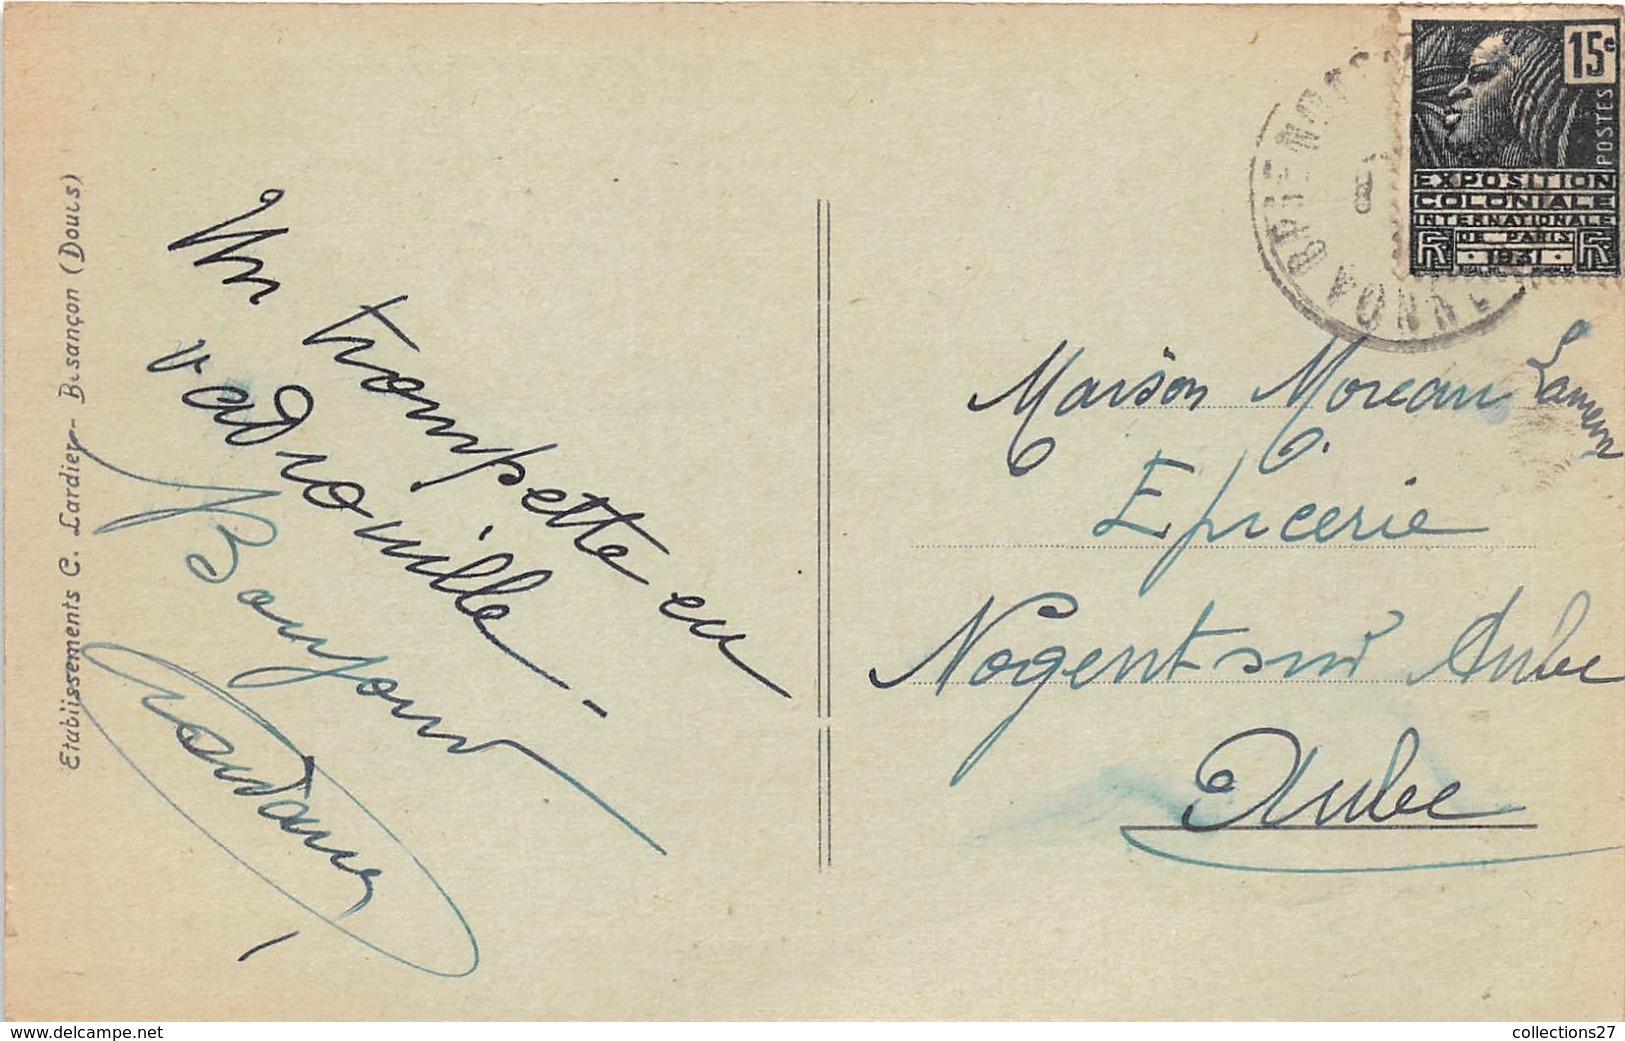 Etablissements C. Lardier - Besançon (Doubs)
Un trompette en
vadrouille -
Bonjour
15c
POSTES
EXPOSITION
COLONIALE
INTERNATIONALE
DE PARIS
RF 1931 RF
Maison Moreau
Epicerie
Nogent sur Aube
Aube
www.delcampe.net
collections27